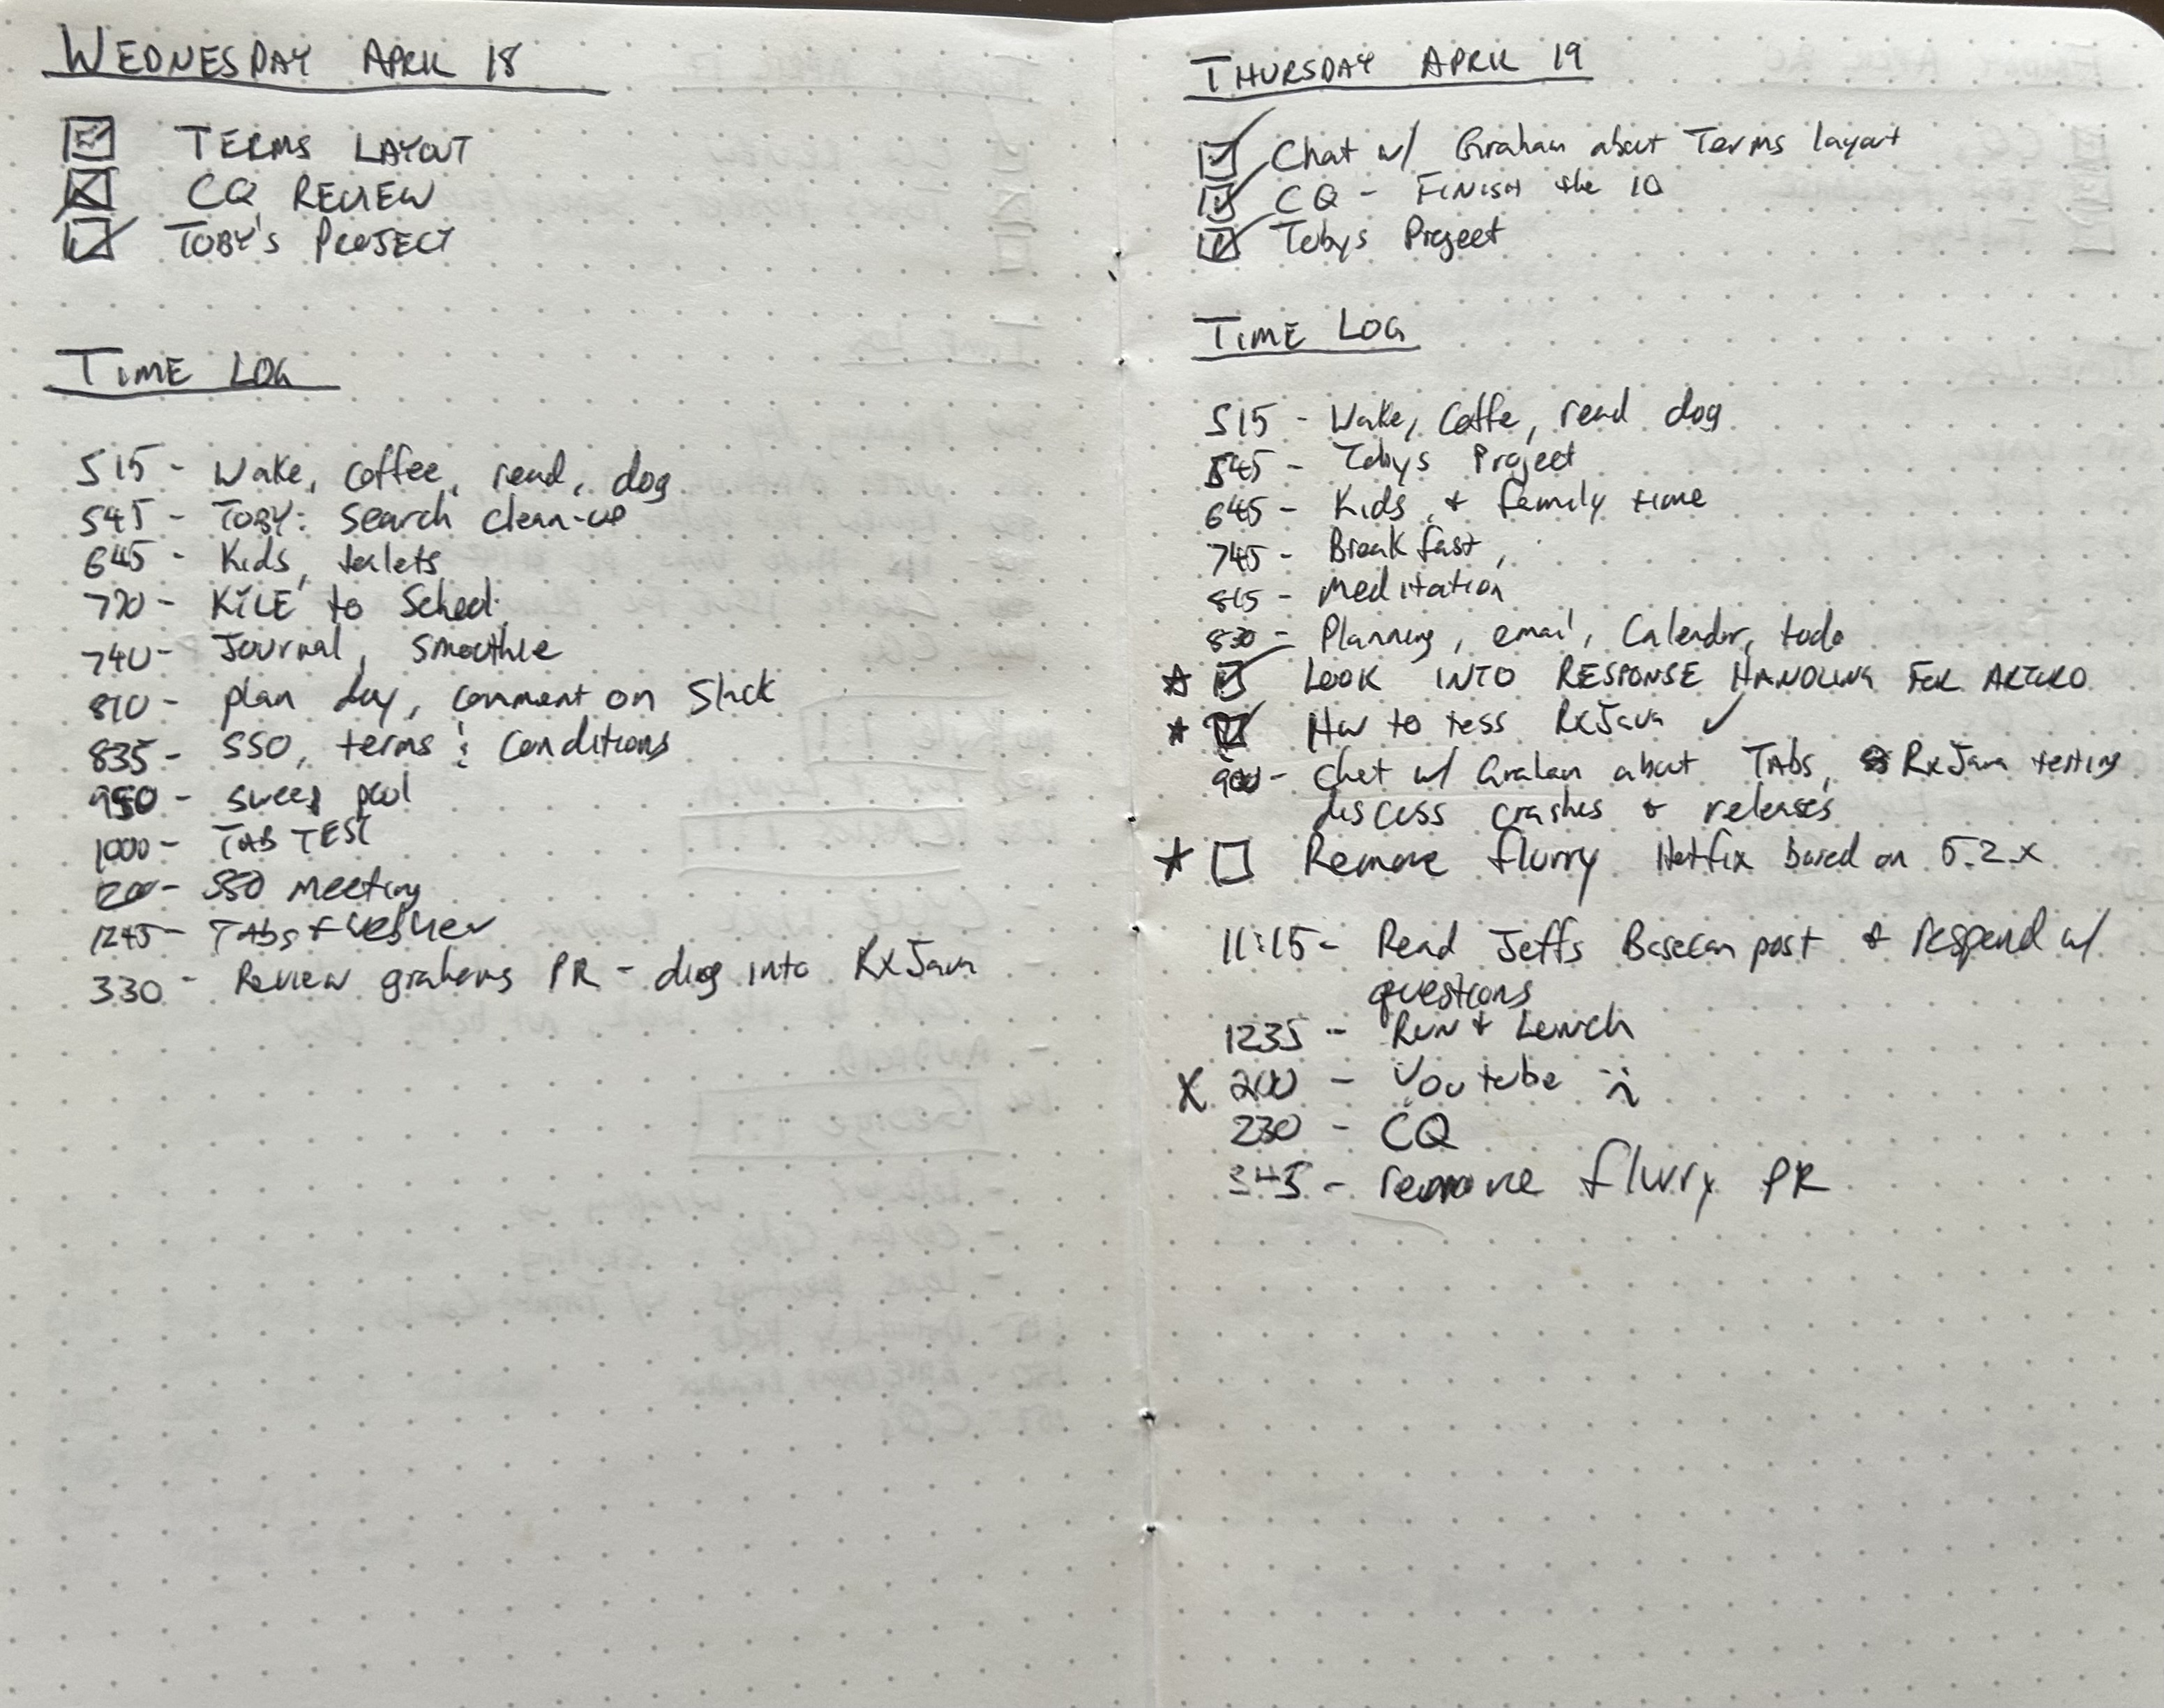 WEDNESDAY APRIL 18
TERMS LAYOUT
CQ REVIEW
TOBY'S PROJECT
TIME LOG
515 - Wake, coffee, read, dog
545 - TOBY: Search clean-up
645 - Kids, toilets
720 - KYLE to School
740 - Journal, smoothie
810 - plan day, comment on Slack
835 - SSO, terms & conditions
950 - sweep pool
1000 - TAB TEST
1200 - SSO Meeting
1245 - TAbs +
330 - Review grahams PR - dig into RxJava
THURSDAY APRIL 19
Chat w/ Graham about Terms layout
CQ - FINISH the 10
Tobys Project
TIME LOG
515 - Wake, Coffe, read dog
545 - Tobys Project
645 - Kids + family time
745 - Breakfast,
815 - Meditation
830 - Planning, email, Calendar, todo
☆ LOOK INTO RESPONSE HANDLING FOR ARTURO
☆ How to tess RxJava ✓
900 - Chat w/ Graham about TAbs, RxJava testing
discuss crashes & releases
☆ Remove flurry Hotfix based on 5.2.x
11:15 - Read Jeffs Basecam post & respond w/
questions
1235 - Run + Lunch
X 200 - Youtube :(
230 - CQ
345 - remove flurry PR